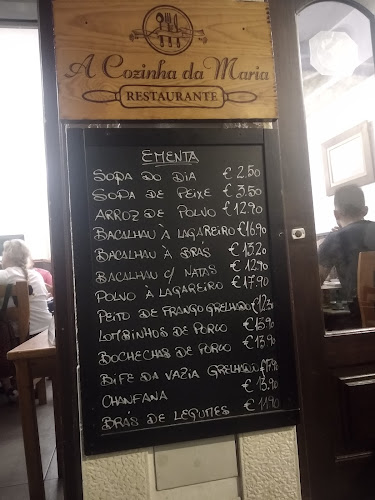 A Cozinha da Maria
RESTAURANTE
EMENTA
SOPA DO DIA € 2.50
SOPA DE PEIXE € 3.50
ARROZ DE POLVO €12.90
BACALHAU À LAGAREIRO €16.90
BACALHAU À BRÁS € 13.20
BACALHAU C/ NATAS € 12.90
POLVO À LAGAREIRO € 17.90
PEITO DE FRANGO GRELHADO
LOMBINHOS DE PORCO
BOCHECHAS DE PORCO € 13.90
BIFE DA VAZIA GRELHADO
CHANFANA € 13.90
BRÁS DE LEGUMES € 11.90